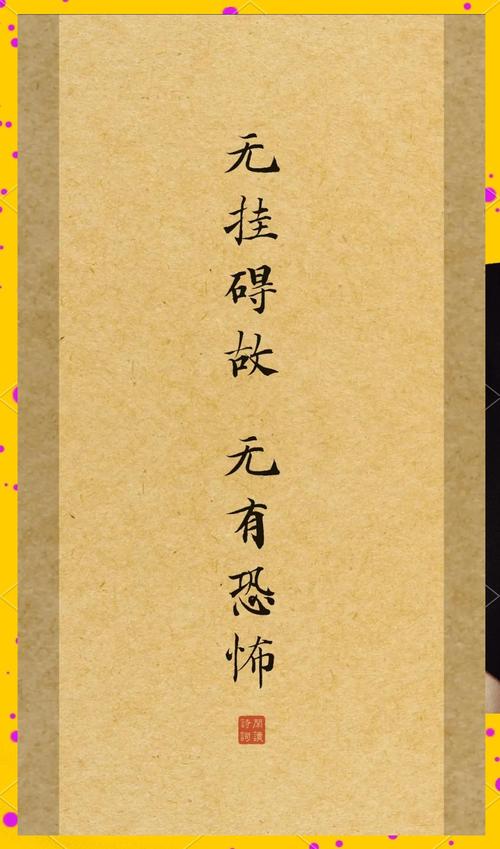 无挂碍故 无有恐怖
閱讀
詩詞